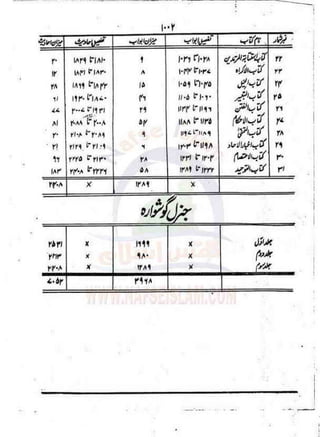 ۱۰۰۲
نمبرشمار نام کتاب تفصیل ابواب میزان ابواب تفصیل احادیث میزان احادیث
۲۲ کتاب استتابۃ المرتدین ۱۰۲۸ تا ۱۰۳۶ ۹ ۱۸۱۰ تا ۱۸۲۹ ۲۰
۲۳ کتاب الاکراہ ۱۰۳۷ تا ۱۰۴۴ ۸ ۱۸۳۰ تا ۱۸۴۱ ۱۲
۲۴ کتاب الحیل ۱۰۴۵ تا ۱۰۵۹ ۱۵ ۱۸۴۲ تا ۱۸۶۹ ۲۸
۲۵ کتاب التعبیر ۱۰۶۰ تا ۱۱۰۵ ۴۶ ۱۸۷۰ تا ۱۹۳۰ ۶۱
۲۶ کتاب الفتن ۲۹ ۱۹۳۱ تا ۲۰۰۷ ۷۷
۲۷ کتاب الاحکام ۱۱۳۵ تا ۱۱۸۸ ۵۴ ۲۰۰۸ تا ۲۰۸۸ ۸۱
۲۸ کتاب التمنی ۱۱۸۹ تا ۱۱۹۷ ۹ ۲۰۸۹ تا ۲۰
۲۹ کتاب اخبار الآحاد ۱۱۹۸ تا ۱۲۰۳ ۶ ۲۱۰۹ تا ۲۱۲۹ ۲۱
۳۰ کتاب الاعتصام ۱۲۰۴ تا ۱۲۳۱ ۲۸ ۲۱۳۰ تا ۲۲۲۵ ۹۶
۳۱ کتاب التوحید ۱۲۳۲ تا ۱۲۸۹ ۵۸ ۲۲۲۶ تا ۱۸۳
x ۱۲۸۹ x ۲۴۰۸
جنرل گوشوارہ
جلد اول x ۱۶۹۹ x ۲۵۳۱
جلد دوم x ۹۸۰ x ۲۱۱۳
جلد سوم x ۱۲۸۹ x ۲۴۰۸
۳۹۶۸ ۷۰۵۲
WWW.NAFSEISLAM.COM